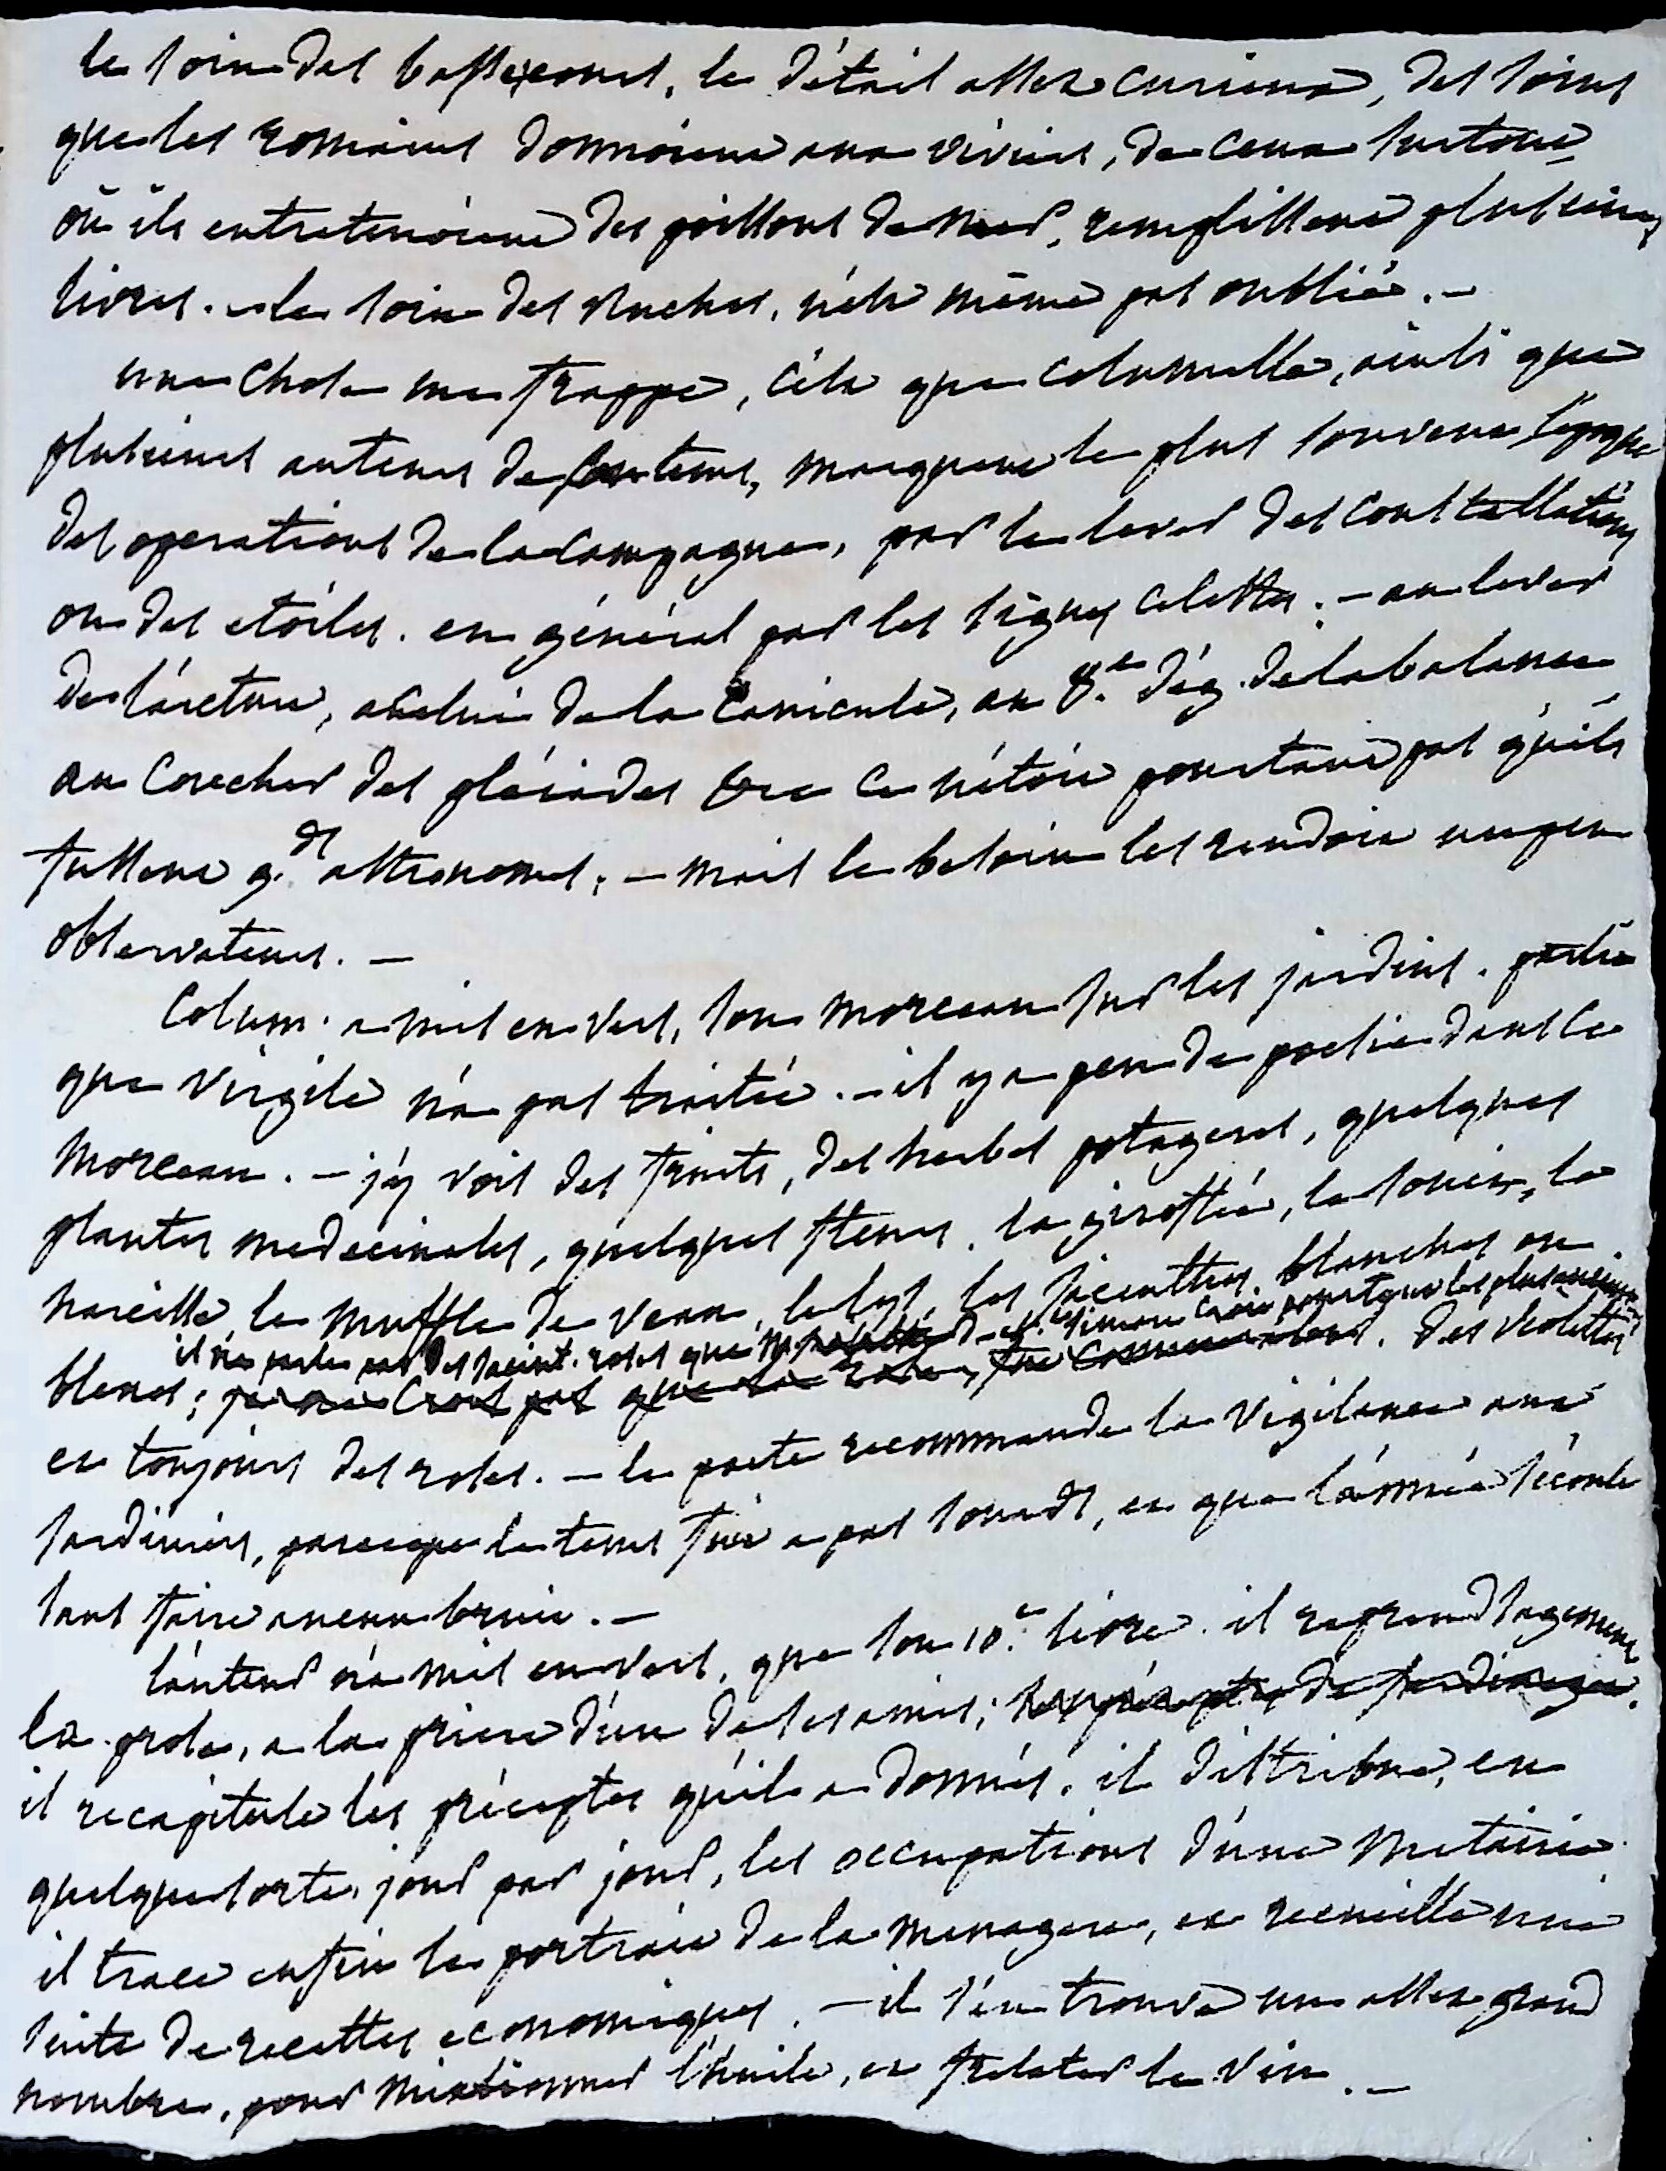 le soin des basse cours, le détail assez curieux, des soins
que les romains donnoient aux viviers, de ceux surtout
où ils entretenoient des poissons de mer, remplissent plusieurs
livres. – le soin des ruches, n'est même pas oublié. –
une chose me frappe, c'est que columelle, ainsi que
plusieurs auteurs de son tems, marquent le plus souvent l'époque
des operations de la campagne, par le lever des constellations
ou des etoiles. en général par les signes celestes. – au lever
de l'arcture, a celui de la canicule, au 8.e dég. de la balance
au coucher des pléiades &c ce n'étoit pourtant pas qu'ils
fussent g.ds astronomes. – mais le besoin les rendoit un peu
observateurs. –
Colum. a mis en vers, son morceau sur les jardins. partie
que virgile n'a pas traitée. – il y a peu de poesie dans ce
morceau. – j'y vois des fruits, des herbes potageres, quelques
plantes medecinales, quelques fleurs. la giroflée, le souci, la
narcisse, le muffle de veau, le lys, les jacinthes blanches ou
il ne parle pas des jacint. roses que croit pourtant les plus anciennes
bleues; je ne crois pas que la rose, fut connue alors. des violettes
et toujours des roses. – le poete recommande la vigilance aux
jardiniers, parceque le tems fuit a pas sourds, et que l'année s'écoule
sans faire aucun bruit. –
l'auteur n'a mis en vers, que son 10.e livre. il reprend sagement
la prose, a la priere d'un de ses amis; les préceptes de jardinage.
il recapitule les préceptes qu'il a donnés. il distribue, en
quelque sorte, jour par jour, les occupations d'une metairie.
il trace enfin le portrait de la menagere, et recueille une
suite de recettes economiques. – il s'en trouve un assez grand
nombre, pour mixtionner l'huile, et frelater le vin. –